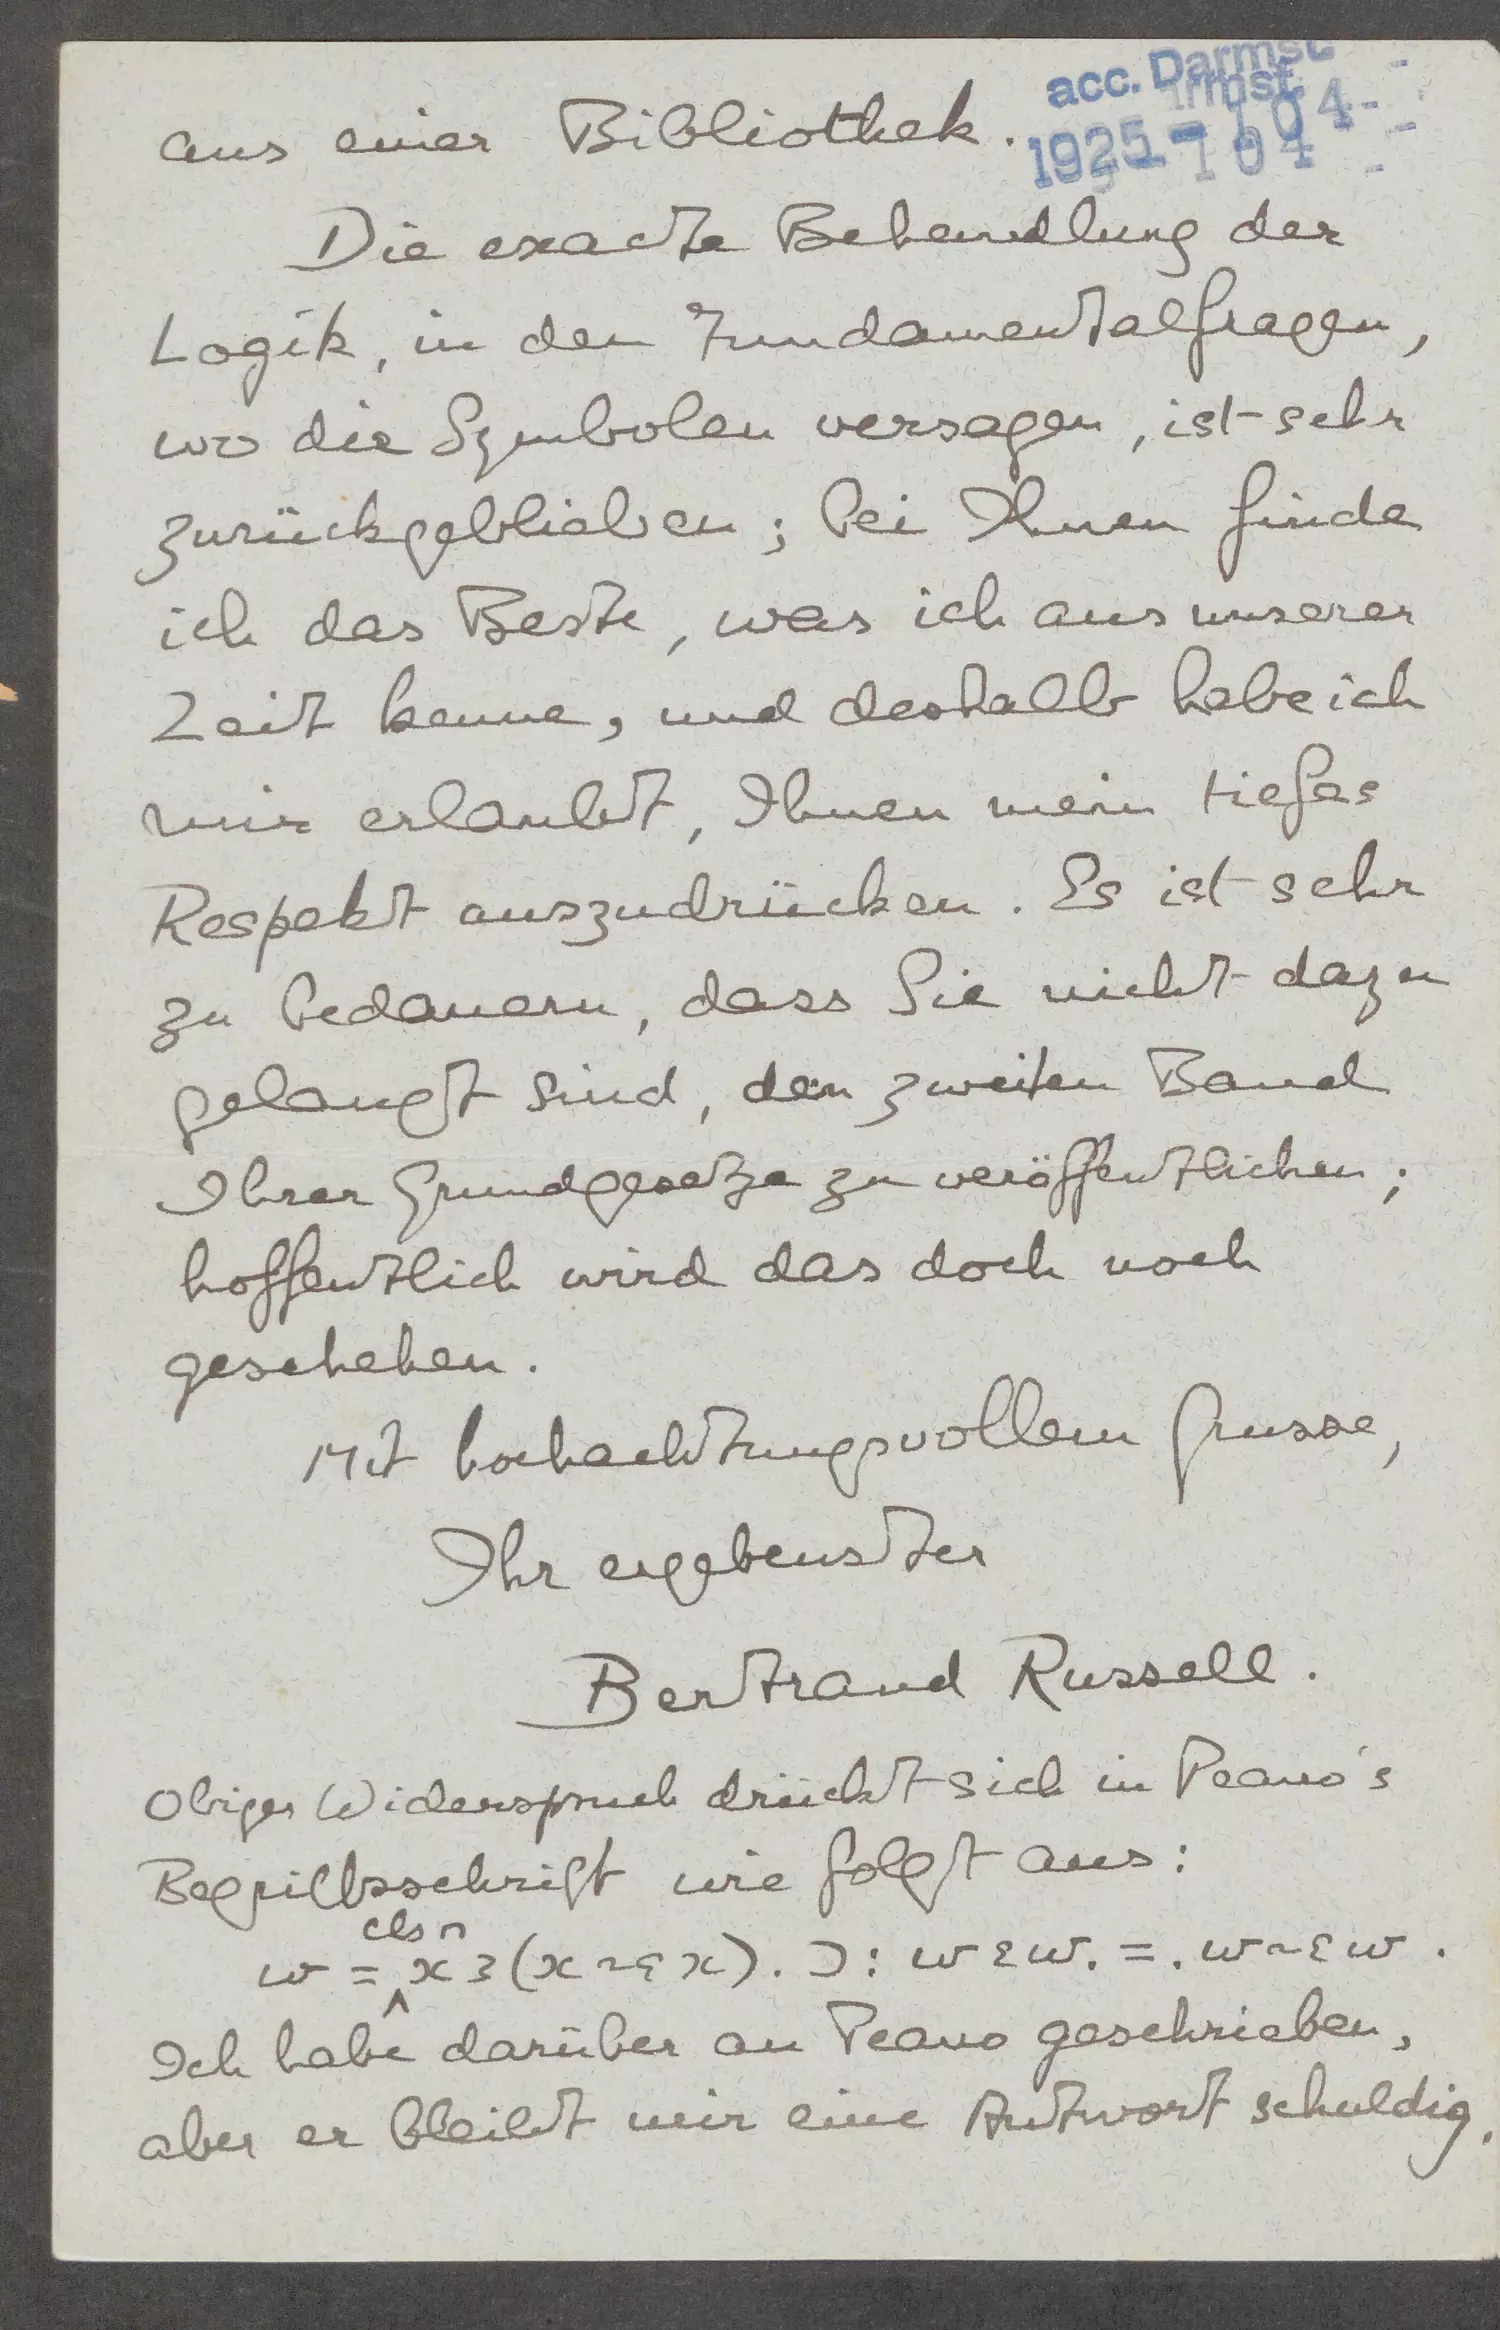 acc. Darmst.
1925-104
aus einer Bibliothek.
Die exacte Behandlung der
Logik, in den Fundamentalfragen,
wo die Symbolen versagen, ist sehr
zurückgeblieben; bei Ihnen finde
ich das Beste, was ich aus unserer
Zeit kenne, und deshalb habe ich
mir erlaubt, Ihnen mein tiefes
Respekt auszudrücken. Es ist sehr
zu bedauern, dass Sie nicht dazu
gelangt sind, den zweiten Band
Ihrer Grundgesetze zu veröffentlichen;
hoffentlich wird das doch noch
geschehen.
Mit hochachtungsvollem Grusse,
Ihr ergebenster
Bertrand Russell.
Obiger Widerspruch drückt sich in Peano's
Begriffsschrift wie folgt aus:
cls ∩
w = ‸ x ɜ (x ~ ε x) . Ɔ : w ε w . = . w ~ ε w .
Ich habe darüber an Peano geschrieben,
aber er bleibt mir eine Antwort schuldig.